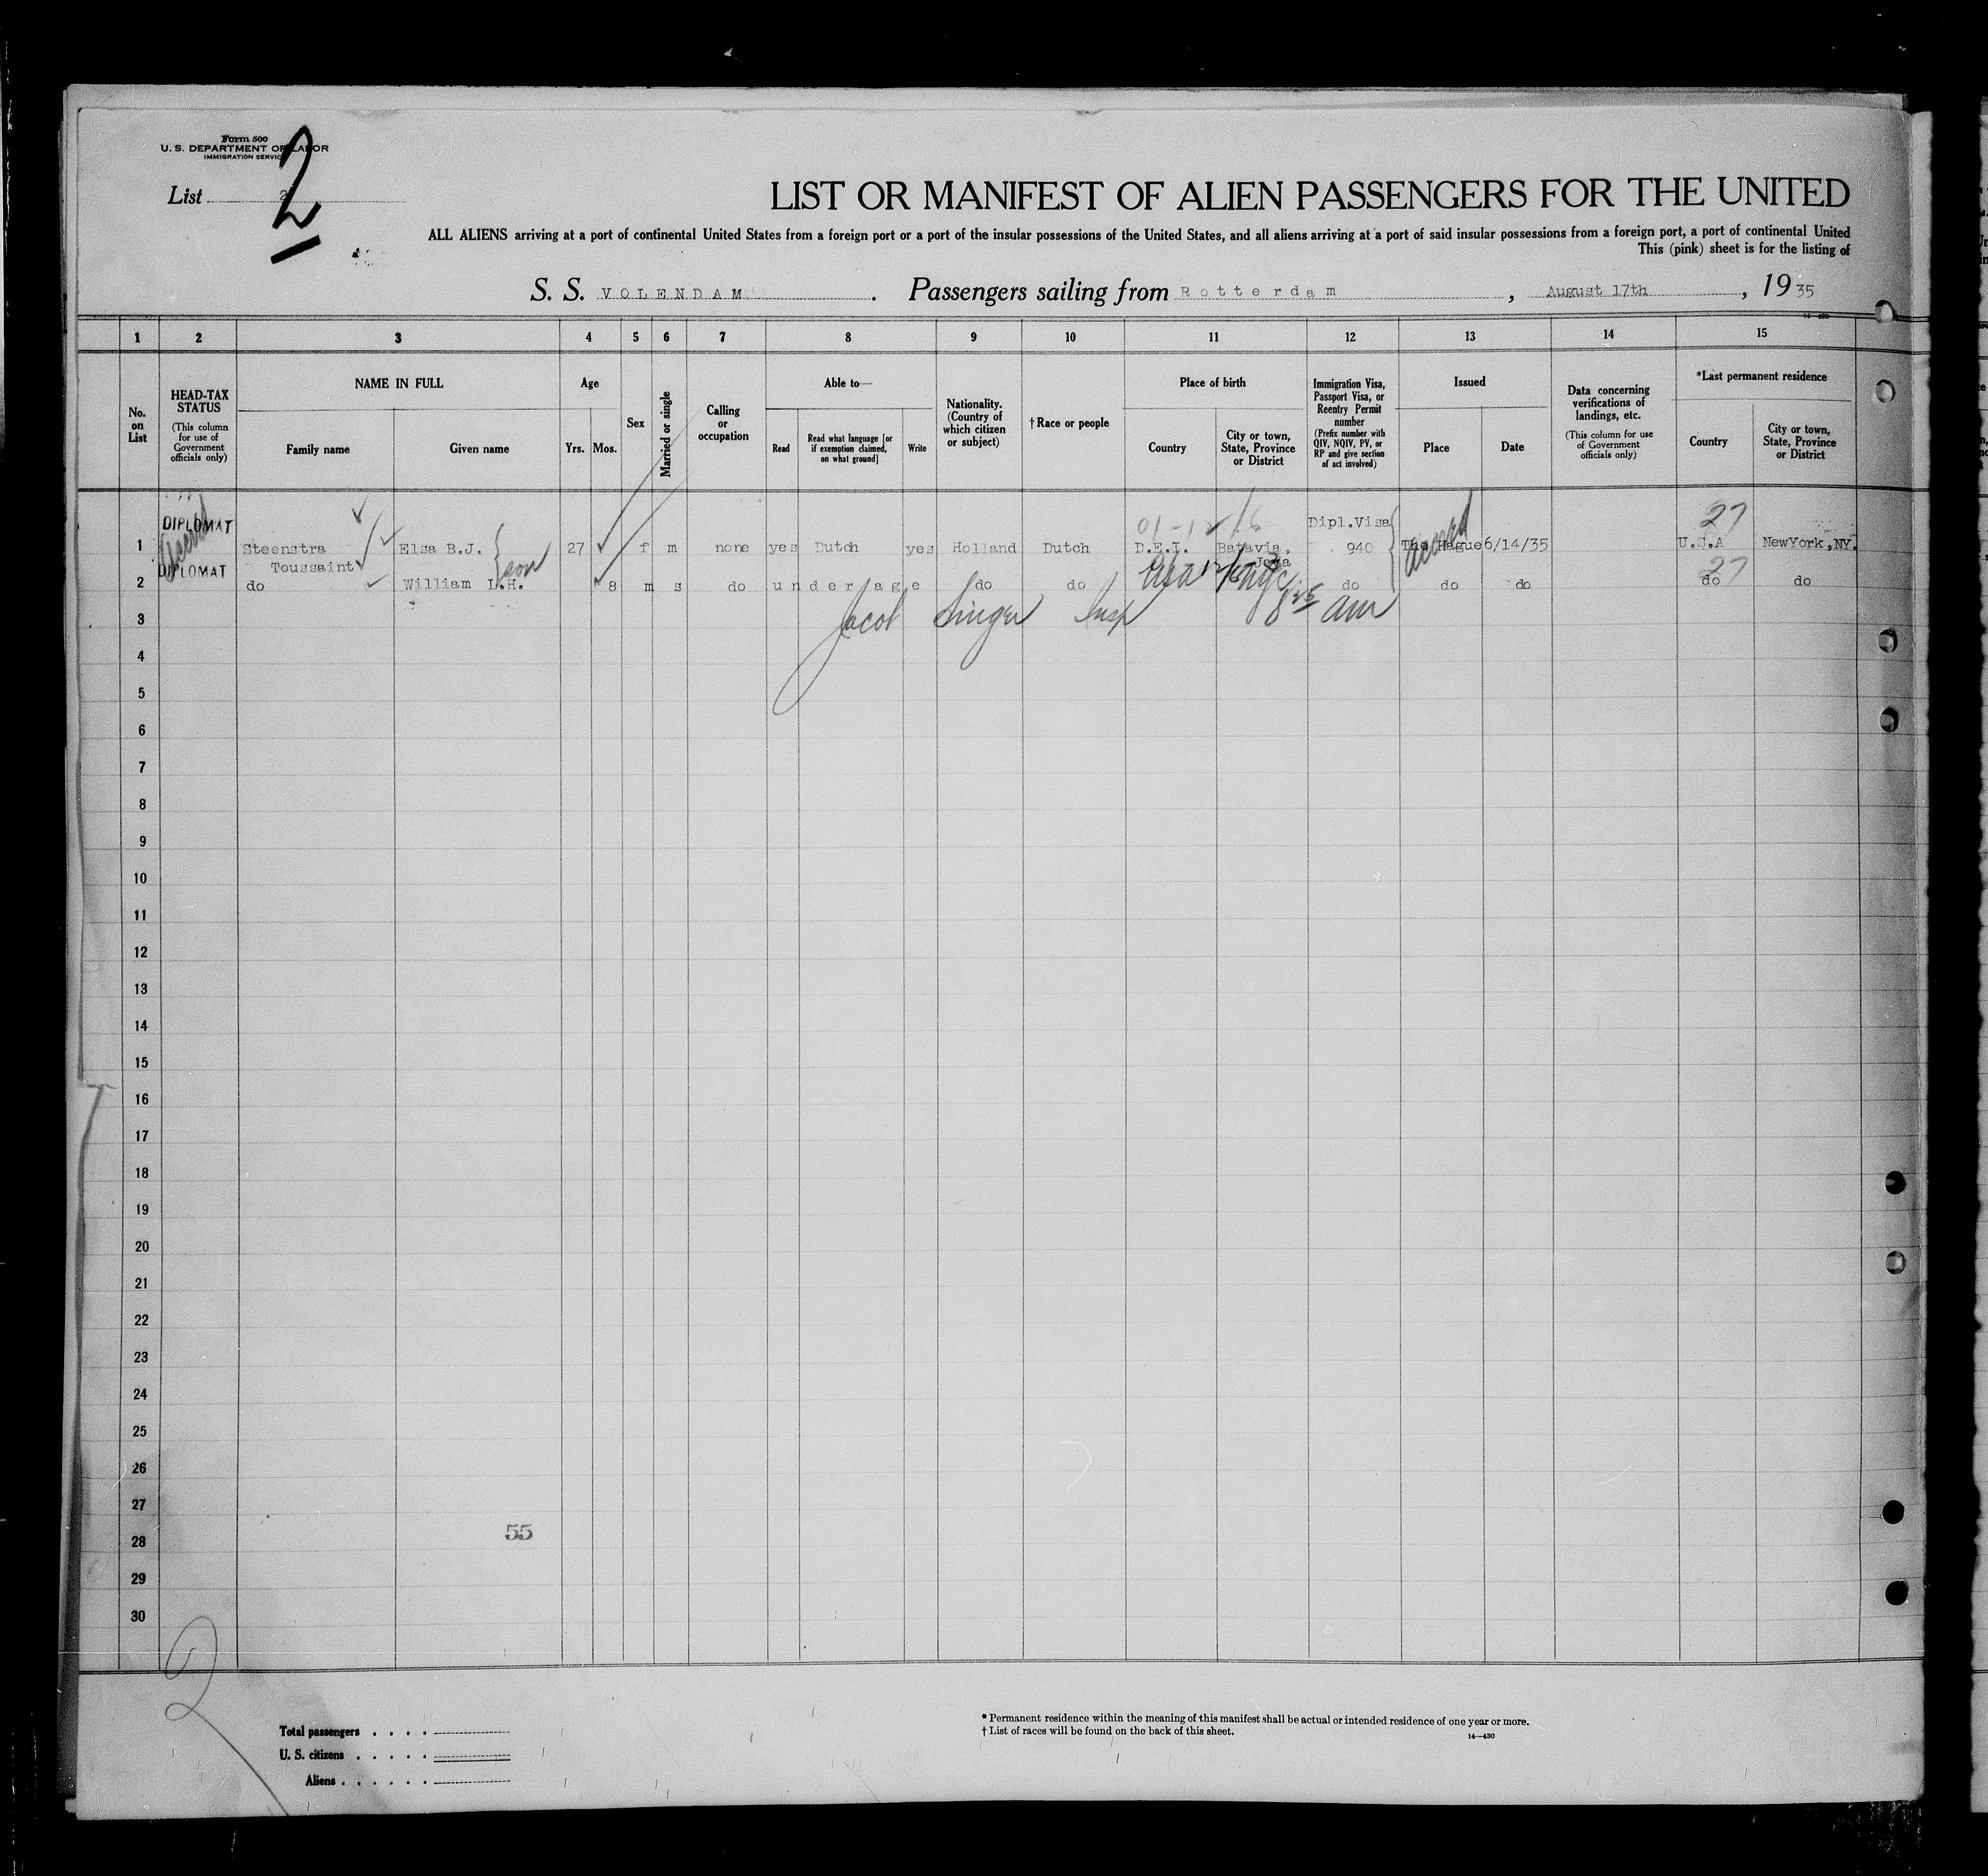 Form 500
U. S. DEPARTMENT OF LABOR
IMMIGRATION SERVICE
List 2
2
LIST OR MANIFEST OF ALIEN PASSENGERS FOR THE UNITED
ALL ALIENS arriving at a port of continental United States from a foreign port or a port of the insular possessions of the United States, and all aliens arriving at a port of said insular possessions from a foreign port, a port of continental United
This (pink) sheet is for the listing of
S. S. VOLENDAM . Passengers sailing from Rotterdam , August 17th , 19 35
1 2 3 4 5 6 7 8 9 10 11 12 13 14 15
No. on List
HEAD-TAX STATUS (This column for use of Government officials only)
NAME IN FULL
Family name
Given name
Age
Yrs. Mos.
Sex
Married or single
Calling or occupation
Able to—
Read
Read what language [or if exemption claimed, on what ground]
Write
Nationality. (Country of which citizen or subject)
† Race or people
Place of birth
Country
City or town, State, Province or District
Immigration Visa, Passport Visa, or Reentry Permit number (Prefix number with QIV, NQIV, PV, or RP and give section of act involved)
Issued
Place
Date
Data concerning verifications of landings, etc. (This column for use of Government officials only)
*Last permanent residence
Country
City or town, State, Province or District
DIPLOMAT Dipl.Visa 27
1 Steenstra Toussaint Elsa B.J. 27 f m none yes Dutch yes Holland Dutch D.E.I. Batavia, Java 940 The Hague 6/14/35 U.S.A NewYork,NY.
son
DIPLOMAT 27
2 do William L.H. 8 m s do under age do do USA NYC do do do do do
3 Jacob Singer Insp 8 25 am
4
5
6
7
8
9
10
11
12
13
14
15
16
17
18
19
20
21
22
23
24
25
26
27
28
29
30
55
2
Total passengers . . . .
U. S. citizens . . . . .
Aliens . . . . . .
* Permanent residence within the meaning of this manifest shall be actual or intended residence of one year or more.
† List of races will be found on the back of this sheet.
14—430